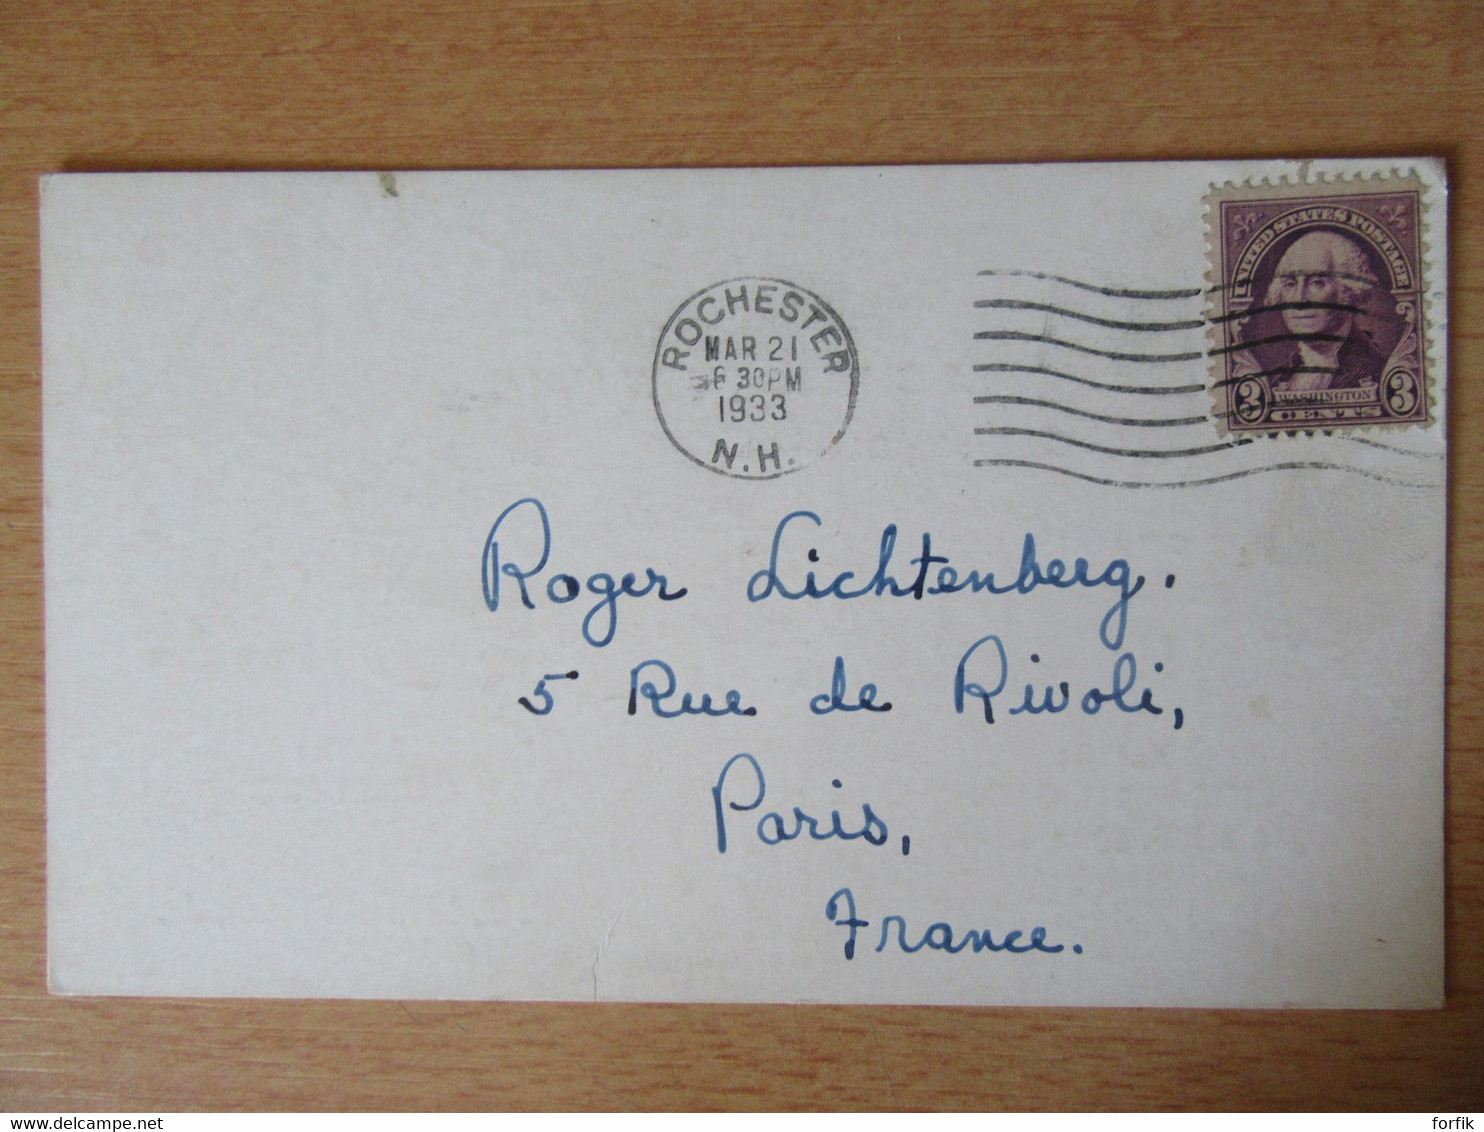 UNITED STATES POSTAGE
3 WASHINGTON 3
CENTS
ROCHESTER
MAR 21
6 30PM
1933
N.H.
Roger Lichtenberg.
5 Rue de Rivoli,
Paris,
France.
delcampe.net
forfik